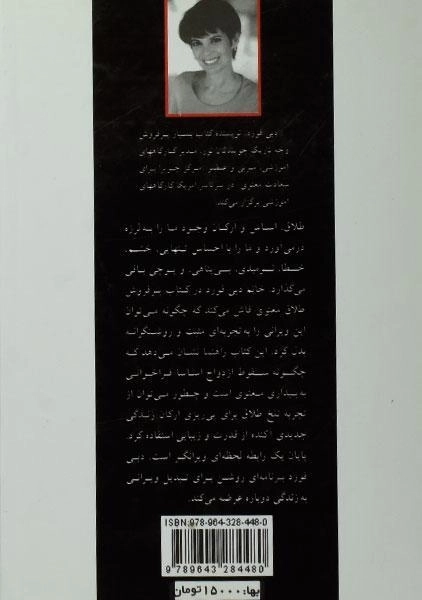 دبی فورد، نویسنده کتاب بسیار پرفروش
وجه تاریک جویندگان نور، مدیر کارگاههای
آموزشی
سعادت معنوی در سرتاسر آمریکا کارگاههای
آموزشی برگزار می‌کند.
طلاق، اساس و ارکان وجود ما را به لرزه
درمی‌آورد و ما را با احساس تنهایی، خشم،
خطا، نومیدی، بی‌پناهی، و پوچی باقی
می‌گذارد. خانم دبی فورد در کتاب پرفروش
طلاق معنوی فاش می‌کند که چگونه می‌توان
این ویرانی را به تجربه‌ای مثبت و روشنگرانه
بدل کرد. این کتاب راهنما نشان می‌دهد که
چگونه سقوط ازدواج اساسا فراخوانی
به بیداری معنوی است و چطور می‌توان از
تجربه تلخ طلاق برای پی‌ریزی ارکان زندگی
جدیدی آکنده از قدرت و زیبایی استفاده کرد.
پایان یک رابطه لحظه‌ای ویرانگر است. دبی
فورد برنامه‌ای روشن برای تبدیل ویرانی
به زندگی دوباره عرضه می‌کند.
ISBN: 978-964-328-448-0
9 789643 284480
بها: ۱۵۰۰۰ تومان